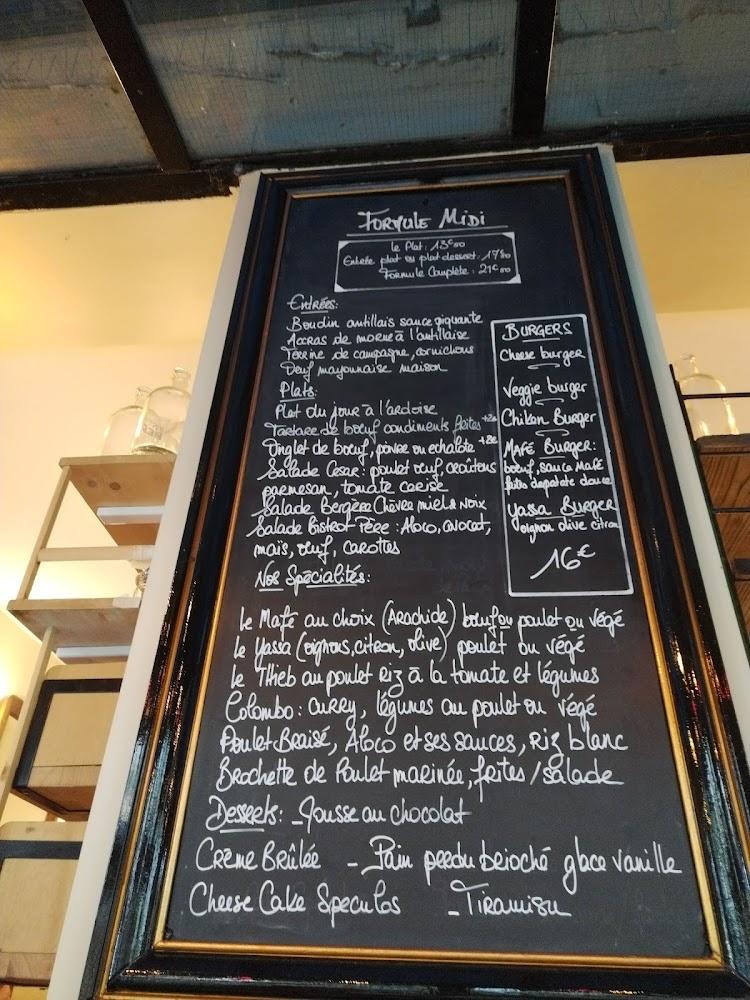 Formule Midi
le Plat : 13€00
Entrée plat ou plat dessert : 17€50
Formule Complète : 21€00
Entrées:
Boudin antillais sauce piquante
Accras de morue à l'antillaise
Terrine de campagne, cornichons
Oeuf mayonnaise maison
Plats:
Plat du jour à l'ardoise
Tartare de bœuf condiments frites +2€
Onglet de bœuf, poivre ou echalote +2€
Salade Cesar : poulet œuf, croûtons
parmesan, tomate cerise
Salade Bergère Chèvre miel & noix
Salade Bistrot Père : Aloco, avocat,
mais, œuf, carottes
BURGERS
Cheese burger
Veggie burger
Chiken Burger
Mafé Burger :
bœuf, sauce Mafé
frites de patate douce
Yassa Burger
oignon olive citron
16€
Nos Spécialités:
Le Mafé au choix (Arachide) bœuf ou poulet ou végé
le Yassa (oignons, citron, olive) poulet ou végé
le Thieb au poulet riz à la tomate et légumes
Colombo : curry, légumes au poulet ou végé
Poulet Braisé, Aloco et ses sauces, riz blanc
Brochette de Poulet marinée, frites / salade
Desserts: - Mousse au chocolat
Crème Brûlée - Pain perdu brioché glace vanille
Cheese Cake Speculos - Tiramisu